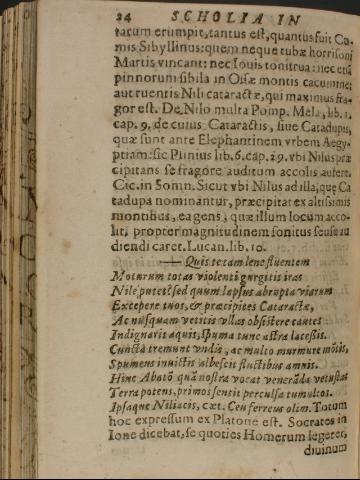 24 SCHOLIA IN
tatum erumpit, tantus est, quantus fuit Cu-
mis Sibyllinus: quem neque tubæ horrisoni
Martis vincant: nec Iouis tonitrua: nec etiã
pinnorum sibila in Ossæ montis cacumine:
aut ruentis Nili cataractæ, qui maximus fra-
gor est. De Nilo multa Pomp. Mela, lib. 1.
cap. 9. de cuius Cataractis, siue Catadupis,
quæ sunt ante Elephantinem vrbem Aegy-
ptiam: sic Plinius lib. 6. cap. 29. vbi Nilus præ
cipitans se fragore auditum accolis aufert.
Cic. in Somn. Sicut vbi Nilus ad illa, quę Ca
tadupa nominantur, præcipitat ex altissimis
montibus, ea gens, quæ illum locum acco-
lit, propter magnitudinem sonitus sensu au
diendi caret. Lucan. lib. 10.
— Quis te tam lene fluentem
Moturum totas violenti gurgitis iras
Nile putet? sed quum lapsus abrupta viarum
Excepere tuos, & præcipites Cataractæ,
Ac nusquam vetitis vllas obsistere cautes
Indignaris aquis, spuma tunc astra lacessis.
Cunctá tremunt vndis, ac multo murmure motis,
Spumeus inuictis albescit fluctibus amnis.
Hinc Abatõ quã nostra vocat venerãda vetustas
Terra potens, primos sentit perculsa tumultos.
Ipsaque Niliacis, cæt. Ceu ferreus olim. Totum
hoc expressum ex Platone est. Socrates in
Ione dicebat, se quoties Homerum legeret,
diuinum